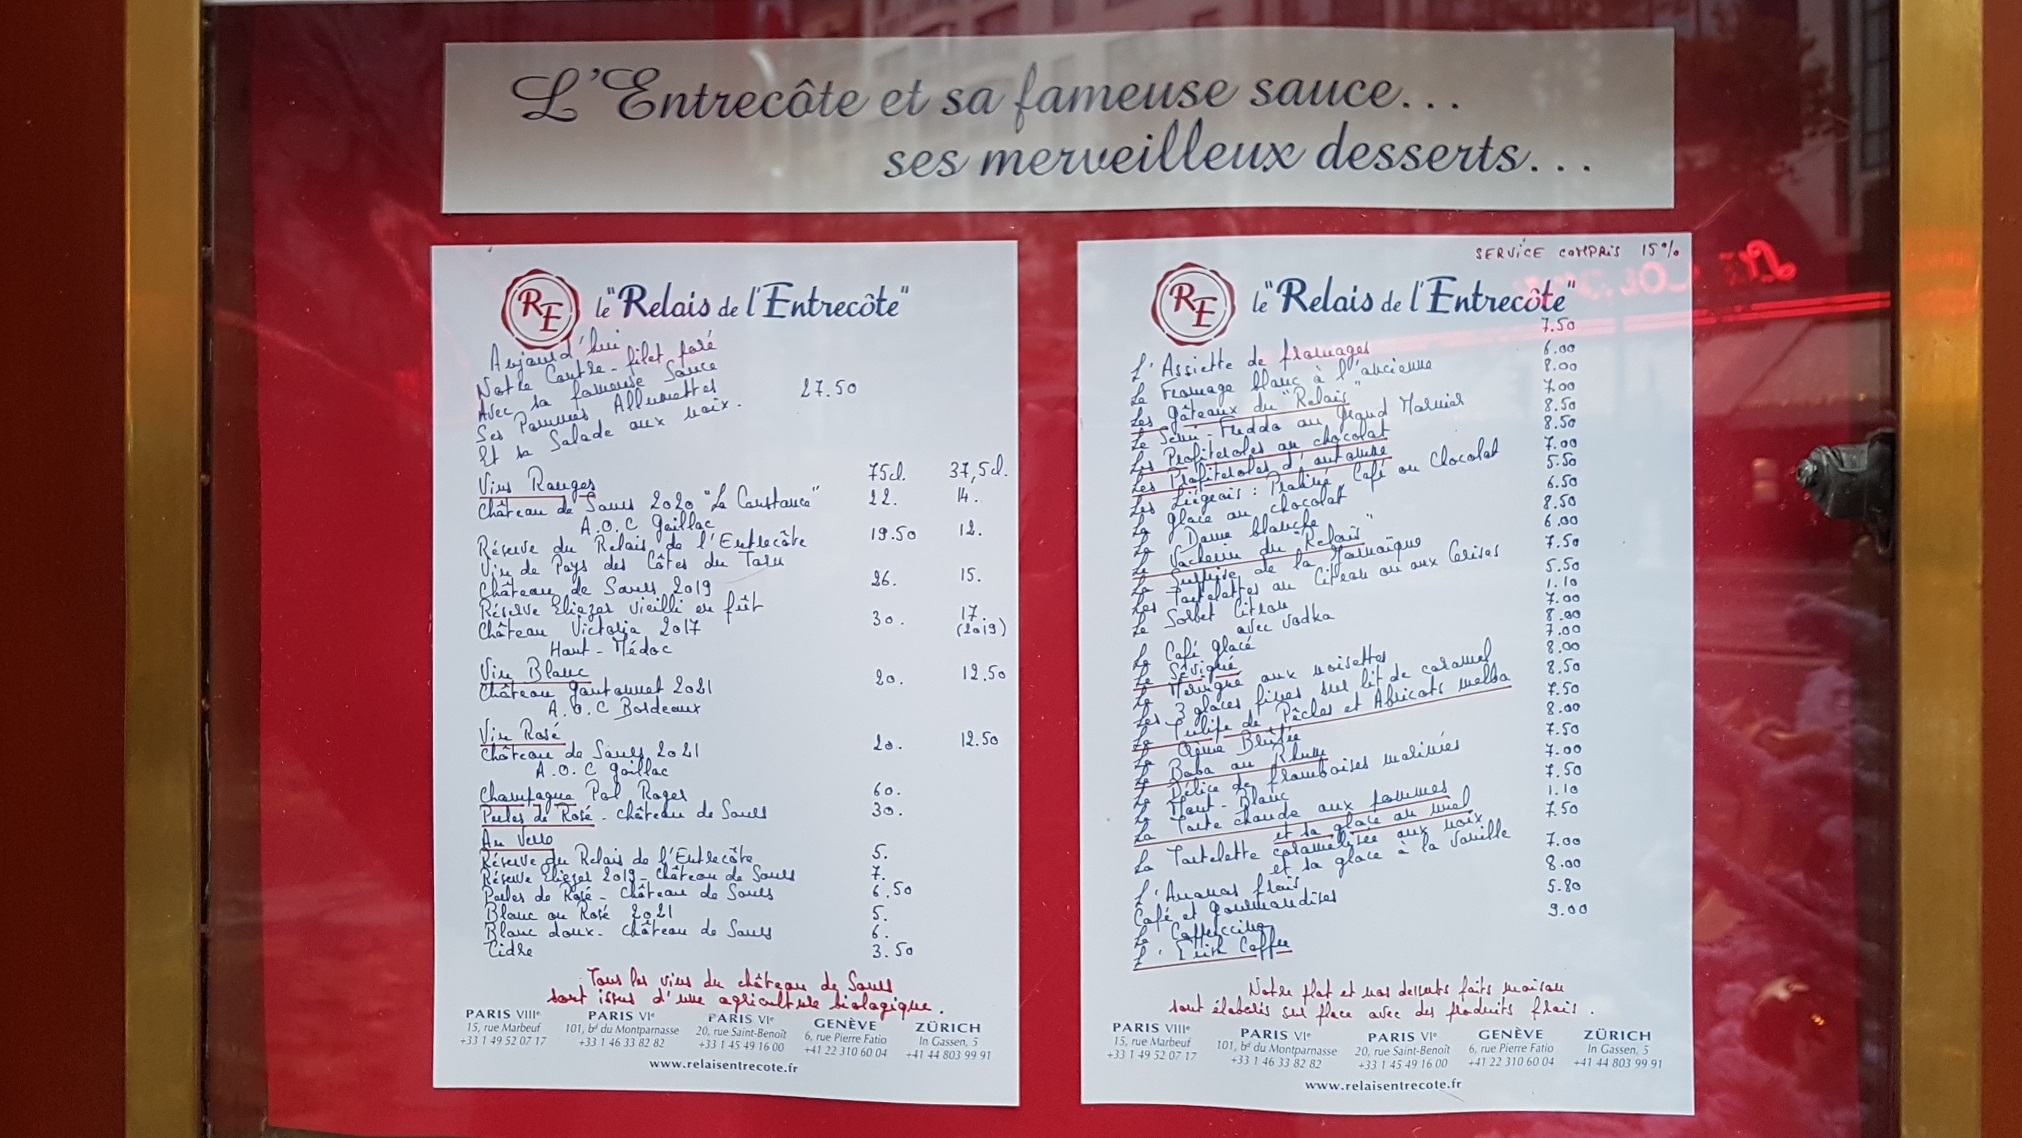 L'Entrecôte et sa fameuse sauce...
ses merveilleux desserts...
RE le "Relais de l'Entrecôte"
Aujourd'hui
Notre Contre-filet paré
Avec sa fameuse Sauce
Ses Pommes Allumettes 27.50
Et sa Salade aux noix.
Vins Rouges 75cl. 37,5cl.
Château de Saurs 2020 "La Constance" 22. 14.
A.O.C Gaillac
Réserve du Relais de l'Entrecôte 19.50 12.
Vin de Pays des Côtes du Tarn
Château de Saurs 2019 26. 15.
Réserve Eliezer vieilli en fût
Château Victoria 2017 30. 17 (2019)
Haut-Médoc
Vin Blanc
Château Gantonnet 2021 20. 12.50
A.O.C Bordeaux
Vin Rosé
Château de Saurs 2021 20. 12.50
A.O.C Gaillac
Champagne Pol Roger 60.
Perles de Rosé - Château de Saurs 30.
Au Verre
Réserve du Relais de l'Entrecôte 5.
Réserve Eliezer 2019 - Château de Saurs 7.
Perles de Rosé - Château de Saurs 6.50
Blanc ou Rosé 2021 5.
Blanc doux - Château de Saurs 6.
Cidre 3.50
Tous les vins du château de Saurs
sont issus d'une agriculture biologique.
PARIS VIIIe PARIS VIe PARIS VIe GENÈVE ZÜRICH
15, rue Marbeuf 101, bd du Montparnasse 20, rue Saint-Benoît 6, rue Pierre Fatio In Gassen, 5
+33 1 49 52 07 17 +33 1 46 33 82 82 +33 1 45 49 16 00 +41 22 310 60 04 +41 44 803 99 91
www.relaisentrecote.fr
SERVICE COMPRIS 15%
RE le "Relais de l'Entrecôte"
L'Assiette de fromages 7.50
Le Fromage blanc à l'ancienne 6.00
Les gâteaux du "Relais" 8.00
Le Semi-Freddo au Grand Marnier 7.00
Les Profiteroles au chocolat 8.50
Les Profiteroles d'automne 8.50
Les Liégeois : Praliné, Café ou Chocolat 7.00
La glace au chocolat 5.50
La Dame blanche 6.50
Le Vacherin du "Relais" 8.50
La Surprise de la Jamaïque 6.00
Les Tartelettes au Citron ou aux Cerises 7.50
Le Sorbet Citron 5.50
avec vodka 1.10
Le Café glacé 7.00
Le Sévigné 8.00
La Meringue aux noisettes 7.00
Les 3 glaces fines sur lit de caramel 8.00
La Tulipe de Pêches et Abricots melba 8.50
La Crème Brûlée 7.50
Le Baba au Rhum 8.00
Le Délice de framboises meringué 7.50
Le Mont-Blanc 7.00
La Tarte chaude aux pommes 7.50
et sa glace au miel 1.10
La Tartelette caramélisée aux noix 7.50
et sa glace à la vanille
L'Ananas frais 7.00
Café et gourmandises 8.00
Le Cappuccino 5.80
L'Irish Coffee 9.00
Notre plat et nos desserts faits maison
sont élaborés sur place avec des produits frais.
PARIS VIIIe PARIS VIe PARIS VIe GENÈVE ZÜRICH
15, rue Marbeuf 101, bd du Montparnasse 20, rue Saint-Benoît 6, rue Pierre Fatio In Gassen, 5
+33 1 49 52 07 17 +33 1 46 33 82 82 +33 1 45 49 16 00 +41 22 310 60 04 +41 44 803 99 91
www.relaisentrecote.fr